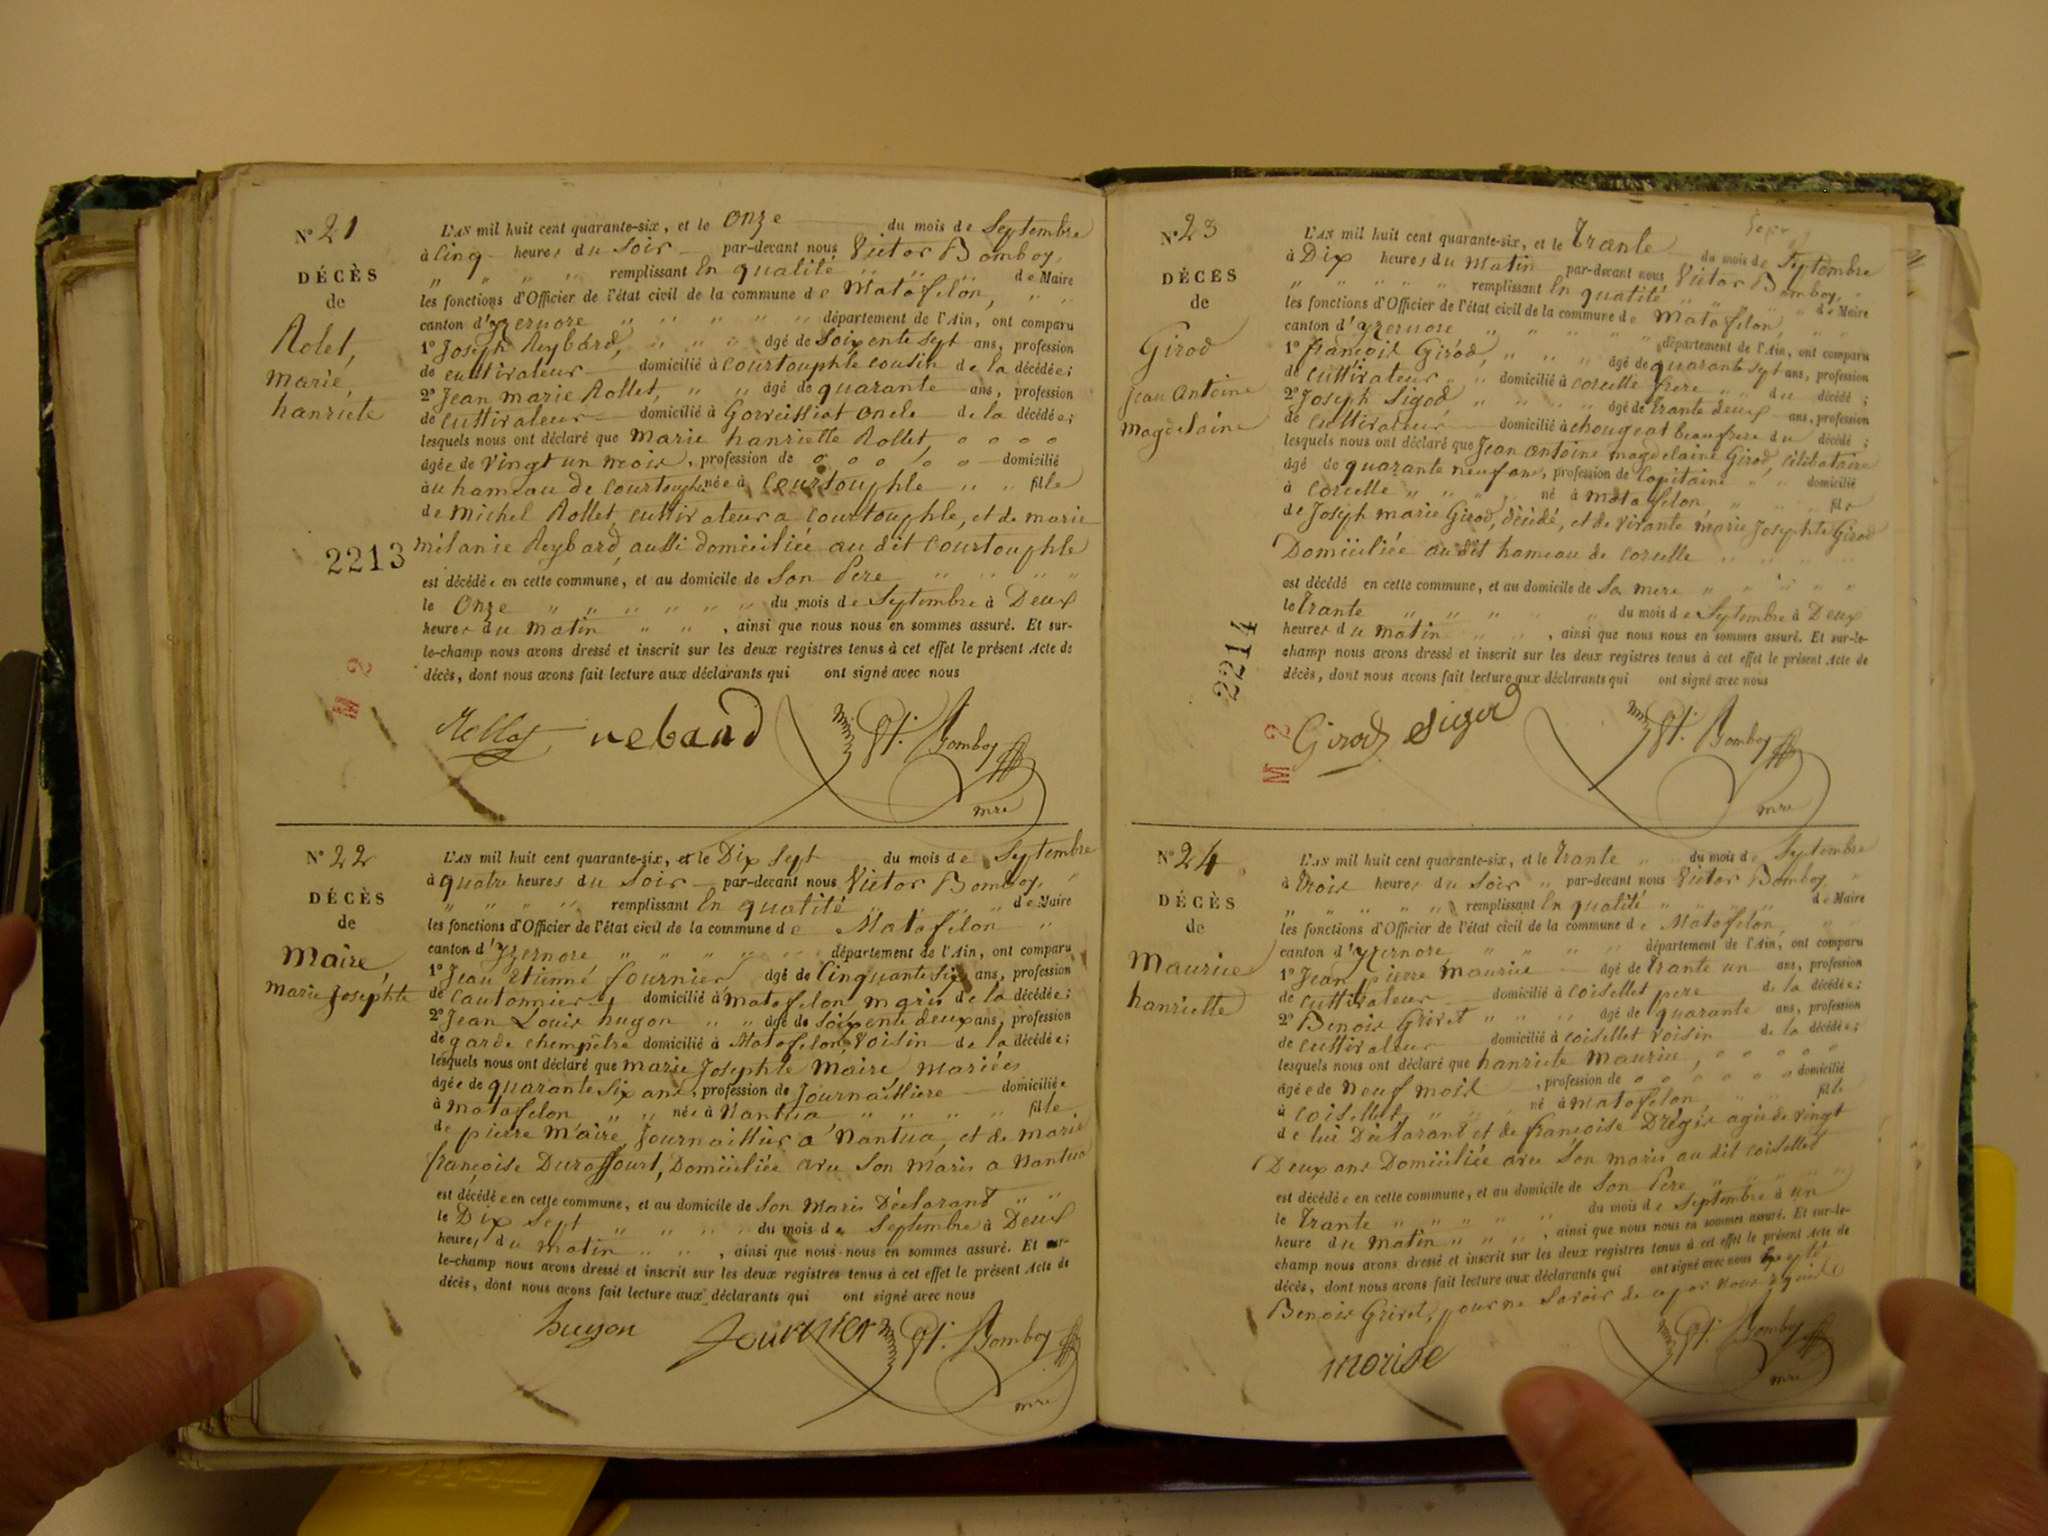 N° 21
DÉCÈS
de
Rolet,
marie,
hanriete
L'AN mil huit cent quarante-six, et le onze du mois de Septembre
à Cinq heures du Soir par-devant nous Victor Bomboy,
remplissant En qualité de Maire
les fonctions d'Officier de l'état civil de la commune de Matafelon,
canton d'yzernore département de l'Ain, ont comparu
1° Joseph Reybard, âgé de Soixente Sept ans, profession
de cultivateur domicilié à courtouphle cousin de la décédée;
2° Jean marie Rollet, âgé de quarante ans, profession
de cultivateur domicilié à Gorveissiat oncle de la décédée;
lesquels nous ont déclaré que marie hanriette Rollet,
âgée de vingt un mois, profession de domicilié
au hameau de Courtouphle née à Courtouphle fille
de Michel Rollet, cultivateur a courtouphle, et de marie
mélanie Reybard, aussi domiciliée au dit Courtouphle
est décédée en cette commune, et au domicile de Son Pere
le Onze du mois de Septembre à Deux
heures du matin, ainsi que nous nous en sommes assuré. Et sur-
le-champ nous avons dressé et inscrit sur les deux registres tenus à cet effet le présent Acte de
décès, dont nous avons fait lecture aux déclarants qui ont signé avec nous
2213
M 2
Rollet rebard Bomboy
mre
N° 22
DÉCÈS
de
Maire,
Marie Josephte
L'AN mil huit cent quarante-six, et le Dix Sept du mois de Septembre
à quatre heures du Soir par-devant nous Victor Bomboy,
remplissant En qualité de Maire
les fonctions d'Officier de l'état civil de la commune de Matafelon
canton d'yzernore département de l'Ain, ont comparu
1° Jean Etienne fournier, âgé de Cinquante Six ans, profession
de Cautonnier, domicilié à matafelon maris de la décédée;
2° Jean Louis hugon âgé de Soixente deux ans, profession
de garde chempêtre domicilié à Matafelon, voisin de la décédée;
lesquels nous ont déclaré que marie Josephte Maire mariées
âgée de quarante Six ans, profession de Journaillière domiciliée
à matafelon née à Nantua fille
de pierre Maire, Journaillier a Nantua, et de marie
françoise Duraffourt, Domiciliée avec Son Maris a Nantua
est décédée en cette commune, et au domicile de Son Maris Déclarant
le Dix Sept du mois de Septembre à Deux
heures du matin, ainsi que nous nous en sommes assuré. Et sur-
le-champ nous avons dressé et inscrit sur les deux registres tenus à cet effet le présent Acte de
décès, dont nous avons fait lecture aux déclarants qui ont signé avec nous
hugon fournier Bomboy
mre
N° 23
DÉCÈS
de
Girod
jean antoine
magdelaine
L'AN mil huit cent quarante-six, et le trante du mois de Septembre
à Dix heures du Matin par-devant nous Victor Bomboy,
remplissant En qualité de Maire
les fonctions d'Officier de l'état civil de la commune de matafelon,
canton d'yzernore département de l'Ain, ont comparu
1° françois Girod, âgé de quarante Sept ans, profession
de cultivateur domicilié à corcelle frere du décédé;
2° Joseph Sigod âgé de trante deux ans, profession
de cultivateur domicilié à chougeat beaufrere du décédé;
lesquels nous ont déclaré que Jean antoine magdelaine Girod, célibataire
âgé de quarante neuf ans, profession de Capitaine domicilié
à corcelle né à matafelon, fils
de Joseph marie Girod, décédé, et de vivante marie Josephte Girod
Domiciliée au dit hameau de corcelle
est décédé en cette commune, et au domicile de Sa mere
le trante du mois de Septembre à Deux
heures du matin, ainsi que nous nous en sommes assuré. Et sur-le-
champ nous avons dressé et inscrit sur les deux registres tenus à cet effet le présent Acte de
décès, dont nous avons fait lecture aux déclarants qui ont signé avec nous
2214
M 2
Girod Sigod Bomboy
mre
N° 24
DÉCÈS
de
Maurice
hanriette
L'AN mil huit cent quarante-six, et le trante du mois de Septembre
à trois heures du Soir par-devant nous Victor Bomboy,
remplissant En qualité de Maire
les fonctions d'Officier de l'état civil de la commune de Matafelon,
canton d'yzernore, département de l'Ain, ont comparu
1° Jean pierre maurice âgé de trante un ans, profession
de cultivateur domicilié à coisellet pere de la décédée;
2° Benois Grivet âgé de quarante ans, profession
de cultivateur domicilié à coisellet voisin de la décédée;
lesquels nous ont déclaré que hanriete Maurice,
âgée de neuf mois, profession de domicilié
à coisellet, né à matafelon, fille
de lui Déclarant et de françoise Drégie agée de vingt
Deux ans Domiciliée avec Son maris au dit coisellet
est décédée en cette commune, et au domicile de Son Pere
le trante du mois de Septembre à un
heure du matin, ainsi que nous nous en sommes assuré. Et sur-le-
champ nous avons dressé et inscrit sur les deux registres tenus à cet effet le présent Acte de
décès, dont nous avons fait lecture aux déclarants qui ont signé avec nous
Benois Grivet, pour ne Savoir de ce par nous
morise Bomboy
mre